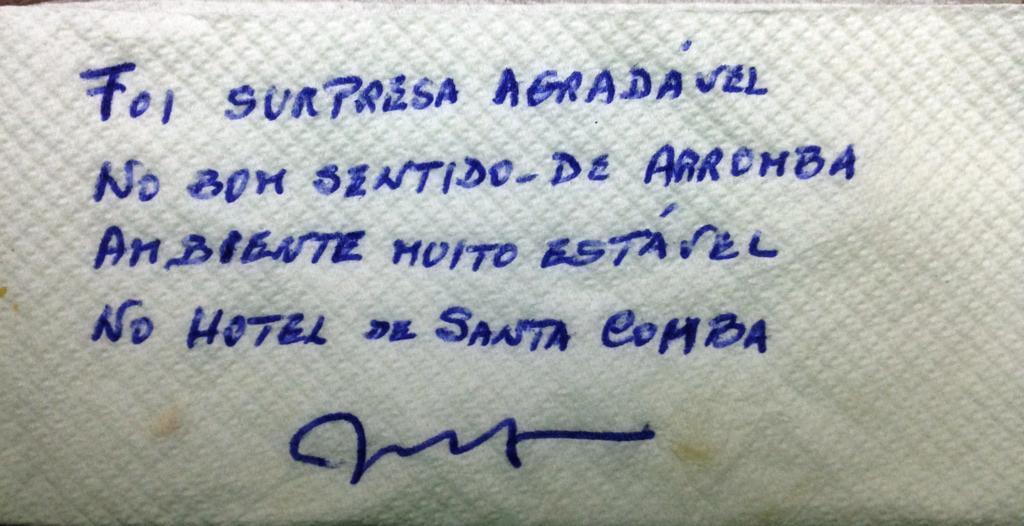 Foi SURPRESA AGRADÁVEL
NO BOM SENTIDO-DE ARROMBA
AMBIENTE MUITO ESTÁVEL
NO HOTEL DE SANTA COMBA